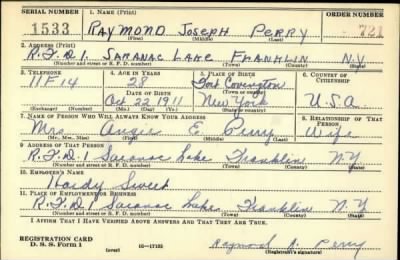 SERIAL NUMBER 1. NAME (Print) ORDER NUMBER
1533 RAYMOND JOSEPH PERRY 721
(First) (Middle) (Last)
2. ADDRESS (Print)
R.F.D.1. SARANAC LAKE FRANKLIN N.Y
(Number and street or R. F. D. number) (Town) (County) (State)
3. TELEPHONE 4. AGE IN YEARS 5. PLACE OF BIRTH 6. COUNTRY OF CITIZENSHIP
11F14 28 Fort Covington
(Town or county)
DATE OF BIRTH
Oct 22 1911 New York U.S.A.
(Exchange) (Number) (Mo.) (Day) (Yr.) (State or country)
7. NAME OF PERSON WHO WILL ALWAYS KNOW YOUR ADDRESS 8. RELATIONSHIP OF THAT PERSON
Mrs. Angie E. Perry Wife
(Mr., Mrs., Miss) (First) (Middle) (Last)
9. ADDRESS OF THAT PERSON
R.F.D.1 Saranac Lake Franklin N.Y
(Number and street or R. F. D. number) (Town) (County) (State)
10. EMPLOYER'S NAME
Hardy Sweet
11. PLACE OF EMPLOYMENT OR BUSINESS
R.F.D.1 Saranac Lake Franklin N.Y
(Number and street or R. F. D. number) (Town) (County) (State)
I AFFIRM THAT I HAVE VERIFIED ABOVE ANSWERS AND THAT THEY ARE TRUE.
REGISTRATION CARD
D. S. S. Form 1 (over) 16—17105 Raymond J. Perry
(Registrant's signature)